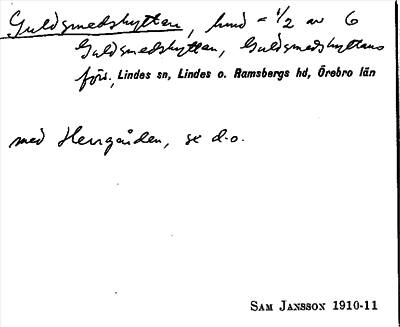 Guldsmedshyttan, hmd = 1/2 av 6
Guldsmedshyttan, Guldsmedshyttans
förs., Lindes sn, Lindes o. Ramsbergs hd, Örebro län
med Herrgården, se d.o.
SAM JANSSON 1910-11